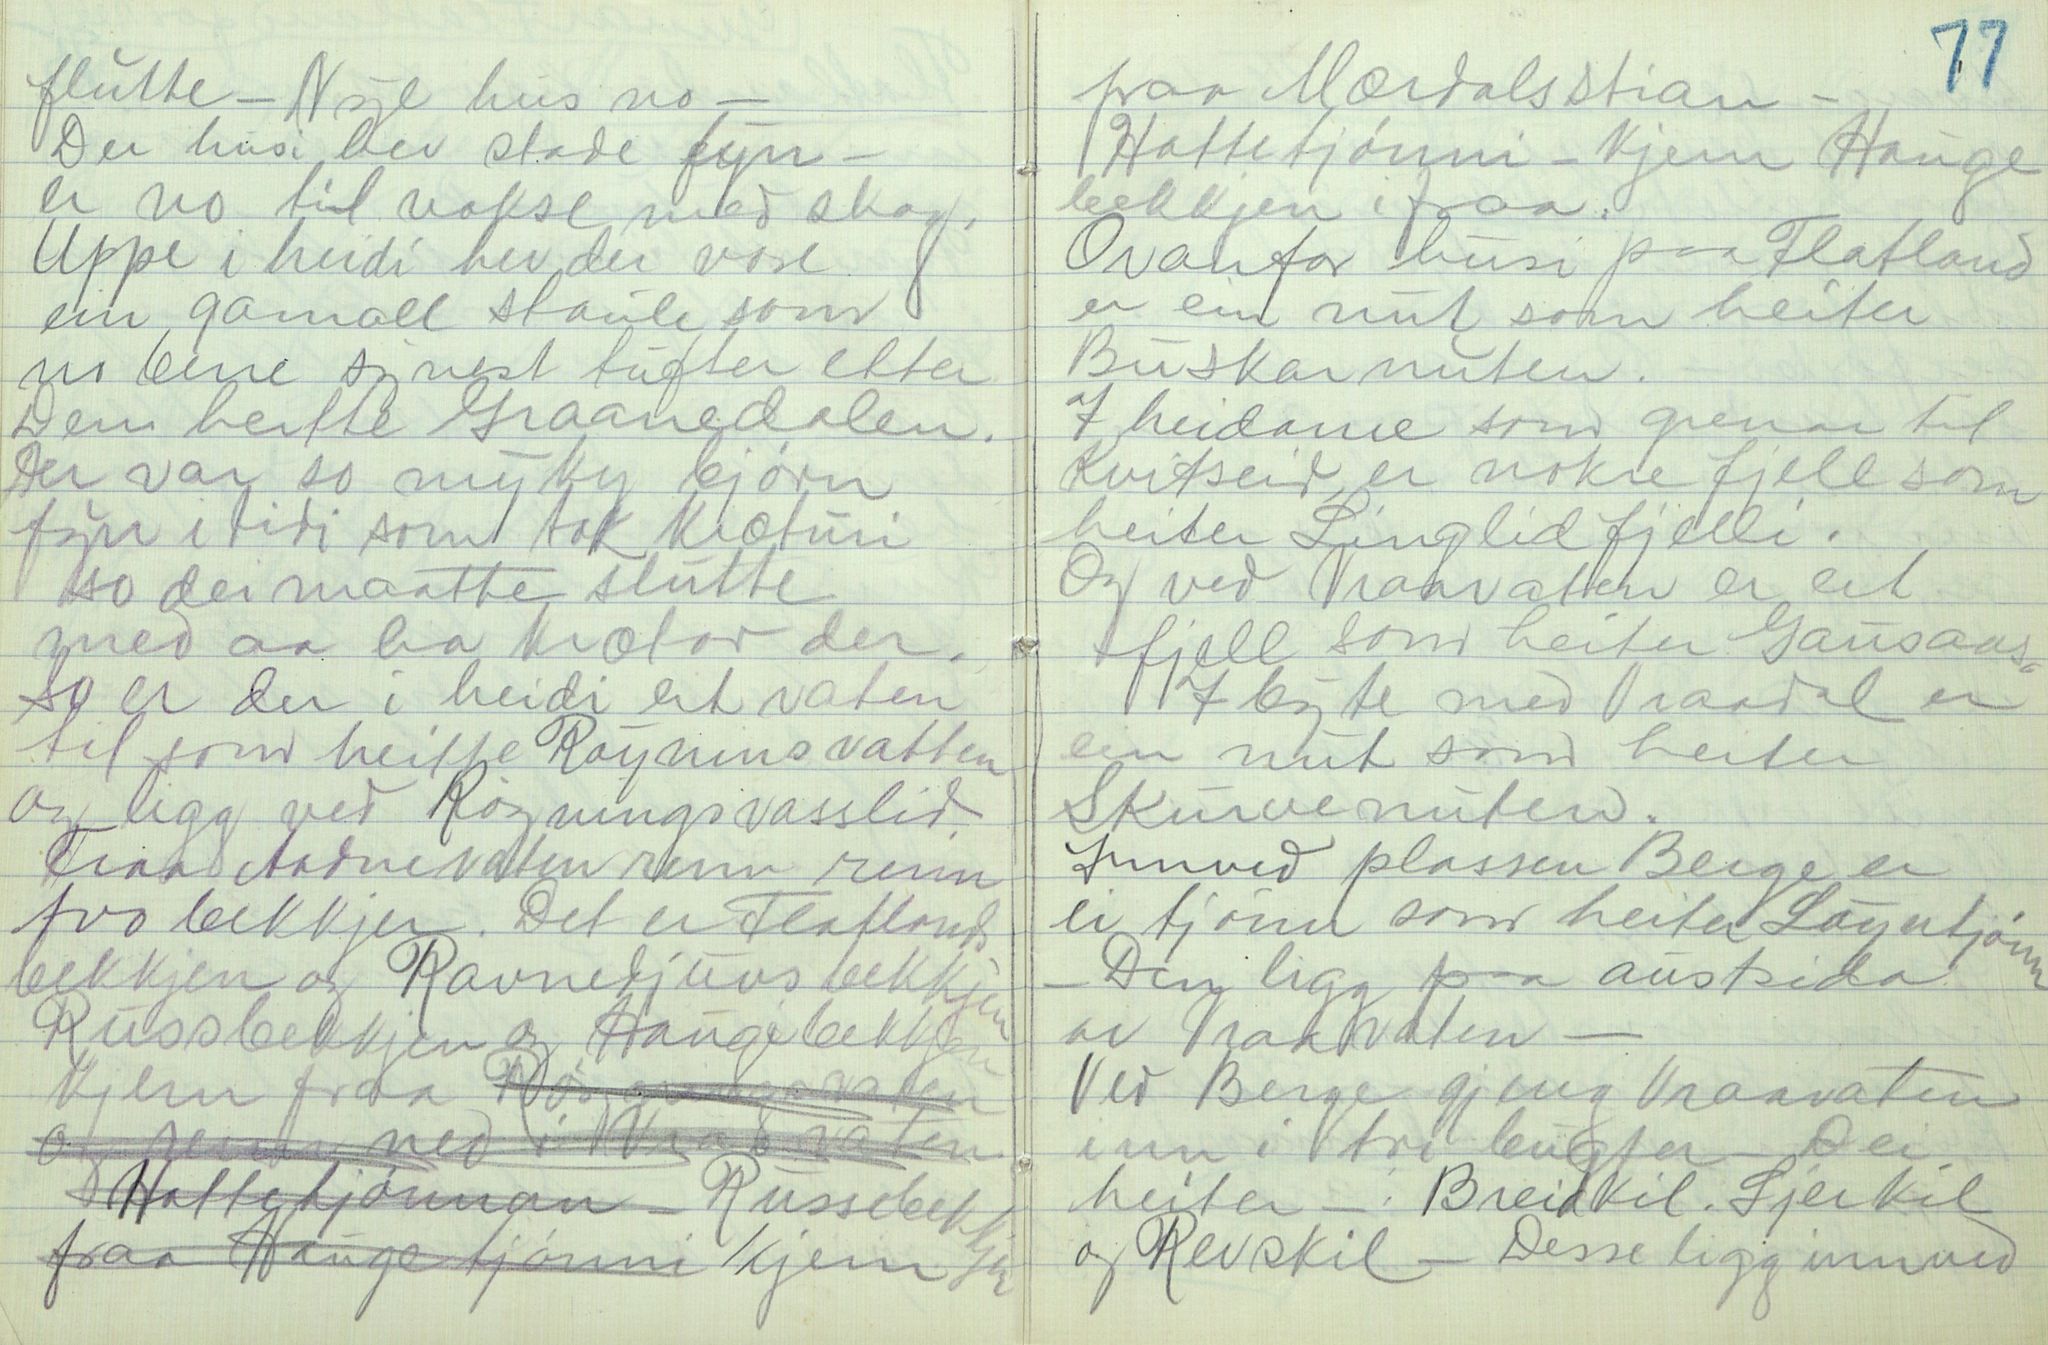 flutte – Nye hus no –
Der husi hev stade fyrr –
er no til vokse med skog.
Uppe i heidi hev der vore
ein gamall staule som
no bere synest tufter etter
Den heitte Graanedalen.
Der var so myky bjørn
fyrr i tidi som tok krøturi
so dei maatte slutte
med aa ha krøtor der.
So er der i heidi eit vaten
til som heitte Røyninsvatten
og ligg ved Røyningsvasslid.
Fraa Aadnevaten renn renn
tvo bekkjer. Det er Flatlands
bekkjen og Ravnedjuvsbekkjen
Russbekkjen og Haugebekkjen
kjem fraa Røyningsvaten
og renn ned i Vraavaten
Hattetjønnan – Russebekkjen
fraa Haugetjønni kjem
77
fraa Mærdalsstian –
Hattetjønni – kjem Hauge
bekkjen ifraa.
Ovanfor husi paa Flatland
er ein nut som heiter
Buskarnuten.
I heidane som grenar til
Kvitseid er nokre fjell som
heiter Linglidfjelli.
Og ved Vraavaten er eit
fjell som heiter Gausaas.
I byte med Vraadal er
ein nut som heiter
Skurvenuten.
Innved plassen Berge er
ei tjønn som heiter Løyntjønn
– Den ligg paa austsida
av Vraavaten –
Ved Berge gjeng Vraavaten
inn i tri bugter – Dei
heiter – : Breidkil. Sjerkil
og Revskil – Desse ligg innved